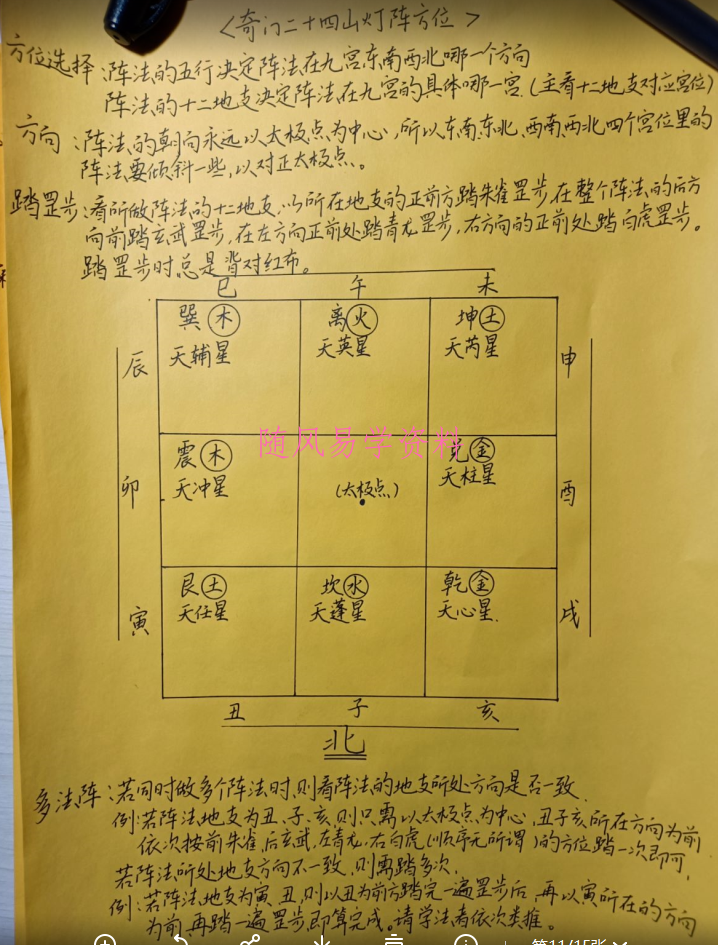 <奇门二十四山灯阵方位>
方位选择:阵法的五行决定阵法在九宫东南西北哪一个方向
阵法的十二地支决定阵法在九宫的具体哪一宫.(主看十二地支对应宫位)
方向:阵法的朝向永远以太极点为中心,所以东南.东北.西南.西北四个宫位里的
阵法要倾斜一些,以对正太极点。
踏罡步:看所做阵法的十二地支,以所在地支的正前方踏朱雀罡步,在整个阵法的后方
向前踏玄武罡步,在左方向正前处踏青龙罡步,右方向的正前处踏白虎罡步。
踏罡步时总是背对红布。
巳 午 未
巽木 离火 坤土
天辅星 天英星 天芮星
辰 申
随风易学资料
震木 金
天冲星 (太极点) 天柱星
卯 酉
艮土 坎水 乾金
天任星 天蓬星 天心星.
寅 戌
丑 子 亥
北
多法阵:若同时做多个阵法时,则看阵法的地支所处方向是否一致.
例:若阵法地支为丑、子、亥,则只需以太极点为中心,丑子亥所在方向为前
依次按前朱雀,后玄武,左青龙,右白虎(顺序无所谓)的方位踏一次即可,
若阵法所处地支方向不一致,则需踏多次.
例:若阵法地支为寅、丑,则以丑为前方踏完一遍罡步后,再以寅所在的方向
为前,再踏一遍罡步,即算完成。请学法者依次类推。
第11/15张